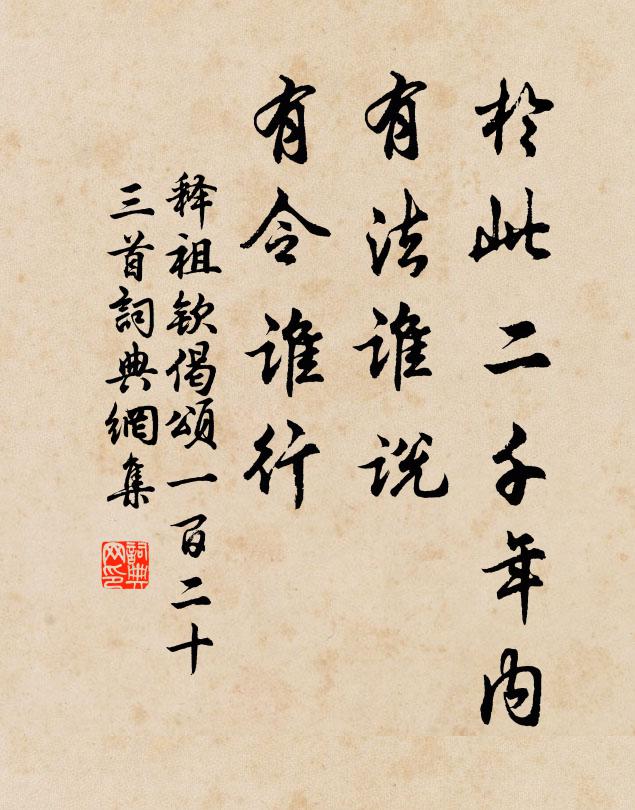 於此二千年内
有法谁説
有令谁行
释祖钦偈頌一百二十
三首詞典網集
詞典网印